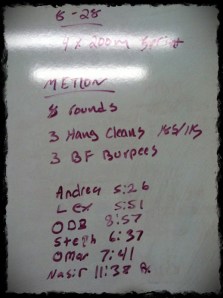 8-28
4 x 200m Sprint
METCON
8 rounds
3 Hang Cleans 155/115
3 BF Burpees
Andrea 5:26
Lex 5:51
ODB 8:57
Steph 6:37
Omar 7:41
Nasir 11:38